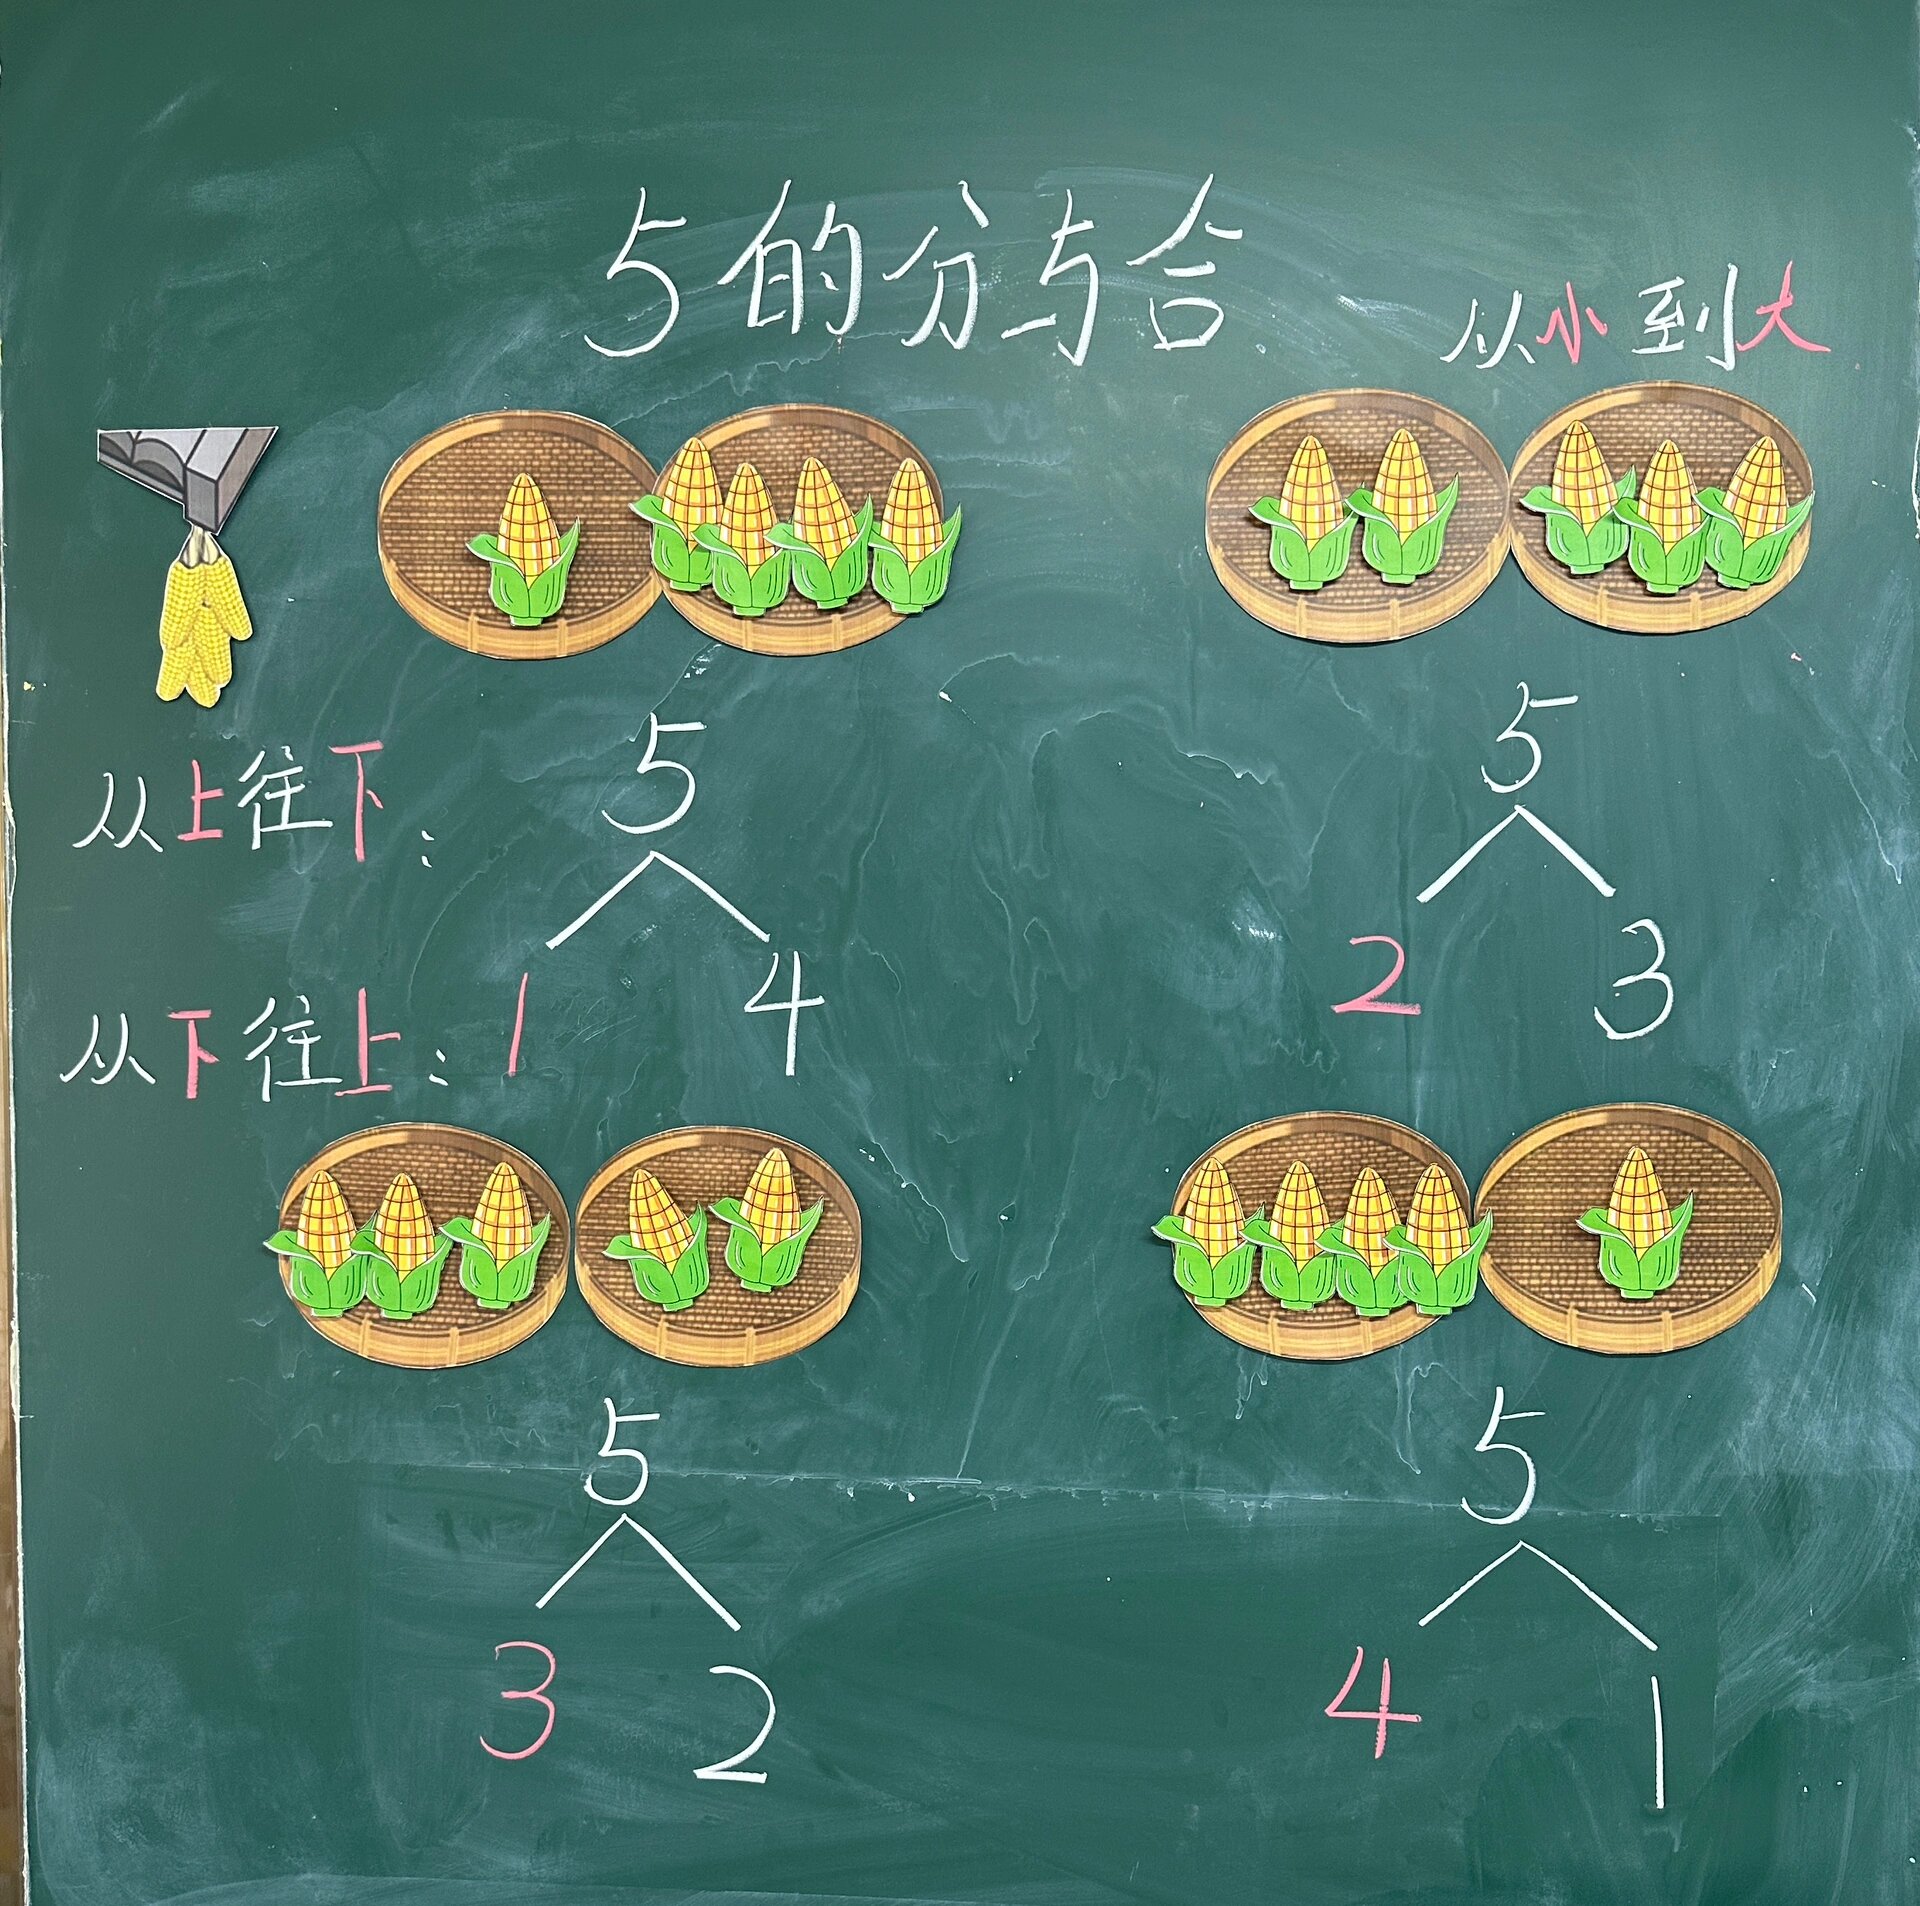 5的分与合
从小到大
从上往下:
5
1 4
5
2 3
从下往上:
5
3 2
5
4 1